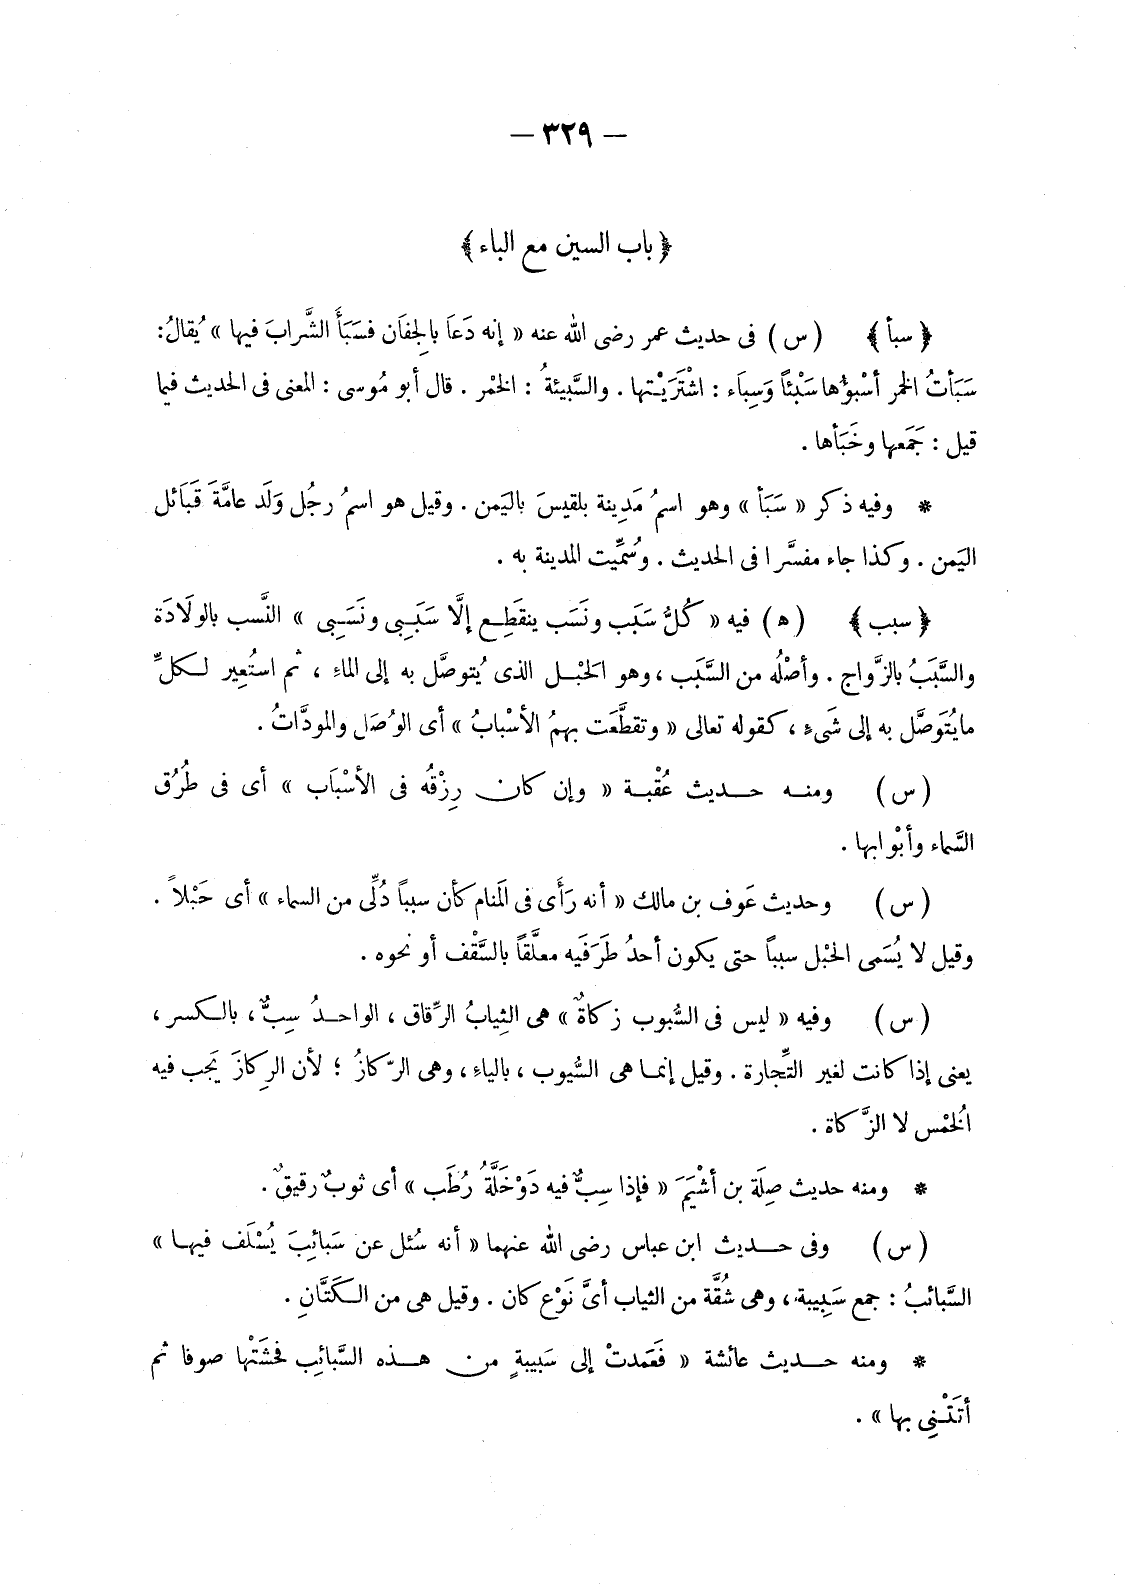 — ٣٢٩ —
﴿ باب السين مع الباء ﴾
﴿ سبأ ﴾ ( س ) فى حديث عمر رضى الله عنه « إنه دَعاَ بالجِفاَن فسَبَأَ الشَّرابَ فيها » يُقالُ :
سَبَأتُ الخمر أسْبَؤُها سَبْئاً وَسِباَء : اشْتَرَيْتها . والسَّبيئةُ : الخمْر . قال أبو مُوسى : المعنى فى الحديث فيما
قيل : جَمَعها وخَبَأها .
* وفيه ذكر « سَبَأ » وهو اسمُ مَدِينة بلقيسَ باليَمن . وقيل هو اسمُ رجُل وَلَد عامَّةَ قَبَائل
اليَمن . وكذا جاء مفسَّرا فى الحديث . وسُمِّيت المدينة به .
﴿ سبب ﴾ ( ه ) فيه « كُلُّ سَبَب ونَسَب ينقَطِع إلَّا سَبَبِى ونَسَبِى » النَّسب بالوِلَادَة
والسَّبَبُ بالزَّواج . وأصْلُه من السَّبَب ، وهو الحَبْل الذى يُتوصَّل به إلى الماءِ ، ثم استُعِير لكلِّ
مايُتَوَصَّل به إلى شَىءٍ ، كقوله تعالى « وتقطَّعَت بهِمُ الأسْبابُ » أى الوُصَل والمودَّاتُ .
( س ) ومنه حديث عُقْبة « وإن كان رِزْقُه فى الأسْبَاب » أى فى طُرُق
السَّماء وأبْوابها .
( س ) وحديث عَوف بن مالك « أنه رَأَى فى المَنام كأن سبباً دُلِّى من السماء » أى حَبْلاً .
وقيل لا يُسَمى الحبْل سبباً حتى يكون أحدُ طَرَفَيه معلَّقاً بالسَّقْف أو نحوه .
( س ) وفيه « ليس فى السُّبوب زكاةٌ » هى الثِيابُ الرِّقاق ، الواحدُ سِبٌّ ، بالكسر ،
يعنى إذا كانت لغير التِّجارة . وقيل إنما هى السُّيوب ، بالياءِ ، وهى الرّكازُ ؛ لأن الرِكازَ يَجب فيه
الخُمْس لا الزَّكاة .
* ومنه حديث صِلَة بن أشْيَمَ « فإذا سِبٌّ فيه دَوْخَلَّةُ رُطَب » أى ثوبٌ رقيقٌ .
( س ) وفى حديث ابن عباس رضى الله عنهما « أنه سُئل عن سَبائِبَ يُسْلَف فيها »
السَّبائبُ : جمع سَبِيبة ، وهى شُقَّة من الثياب أىَّ نَوْع كان . وقيل هى من الكَتَّانِ .
* ومنه حديث عائشة « فَعَمدتْ إلى سَبيبةٍ من هذه السَّبائِب فحَشَتْها صوفا ثم
أتَتْنِى بها » .